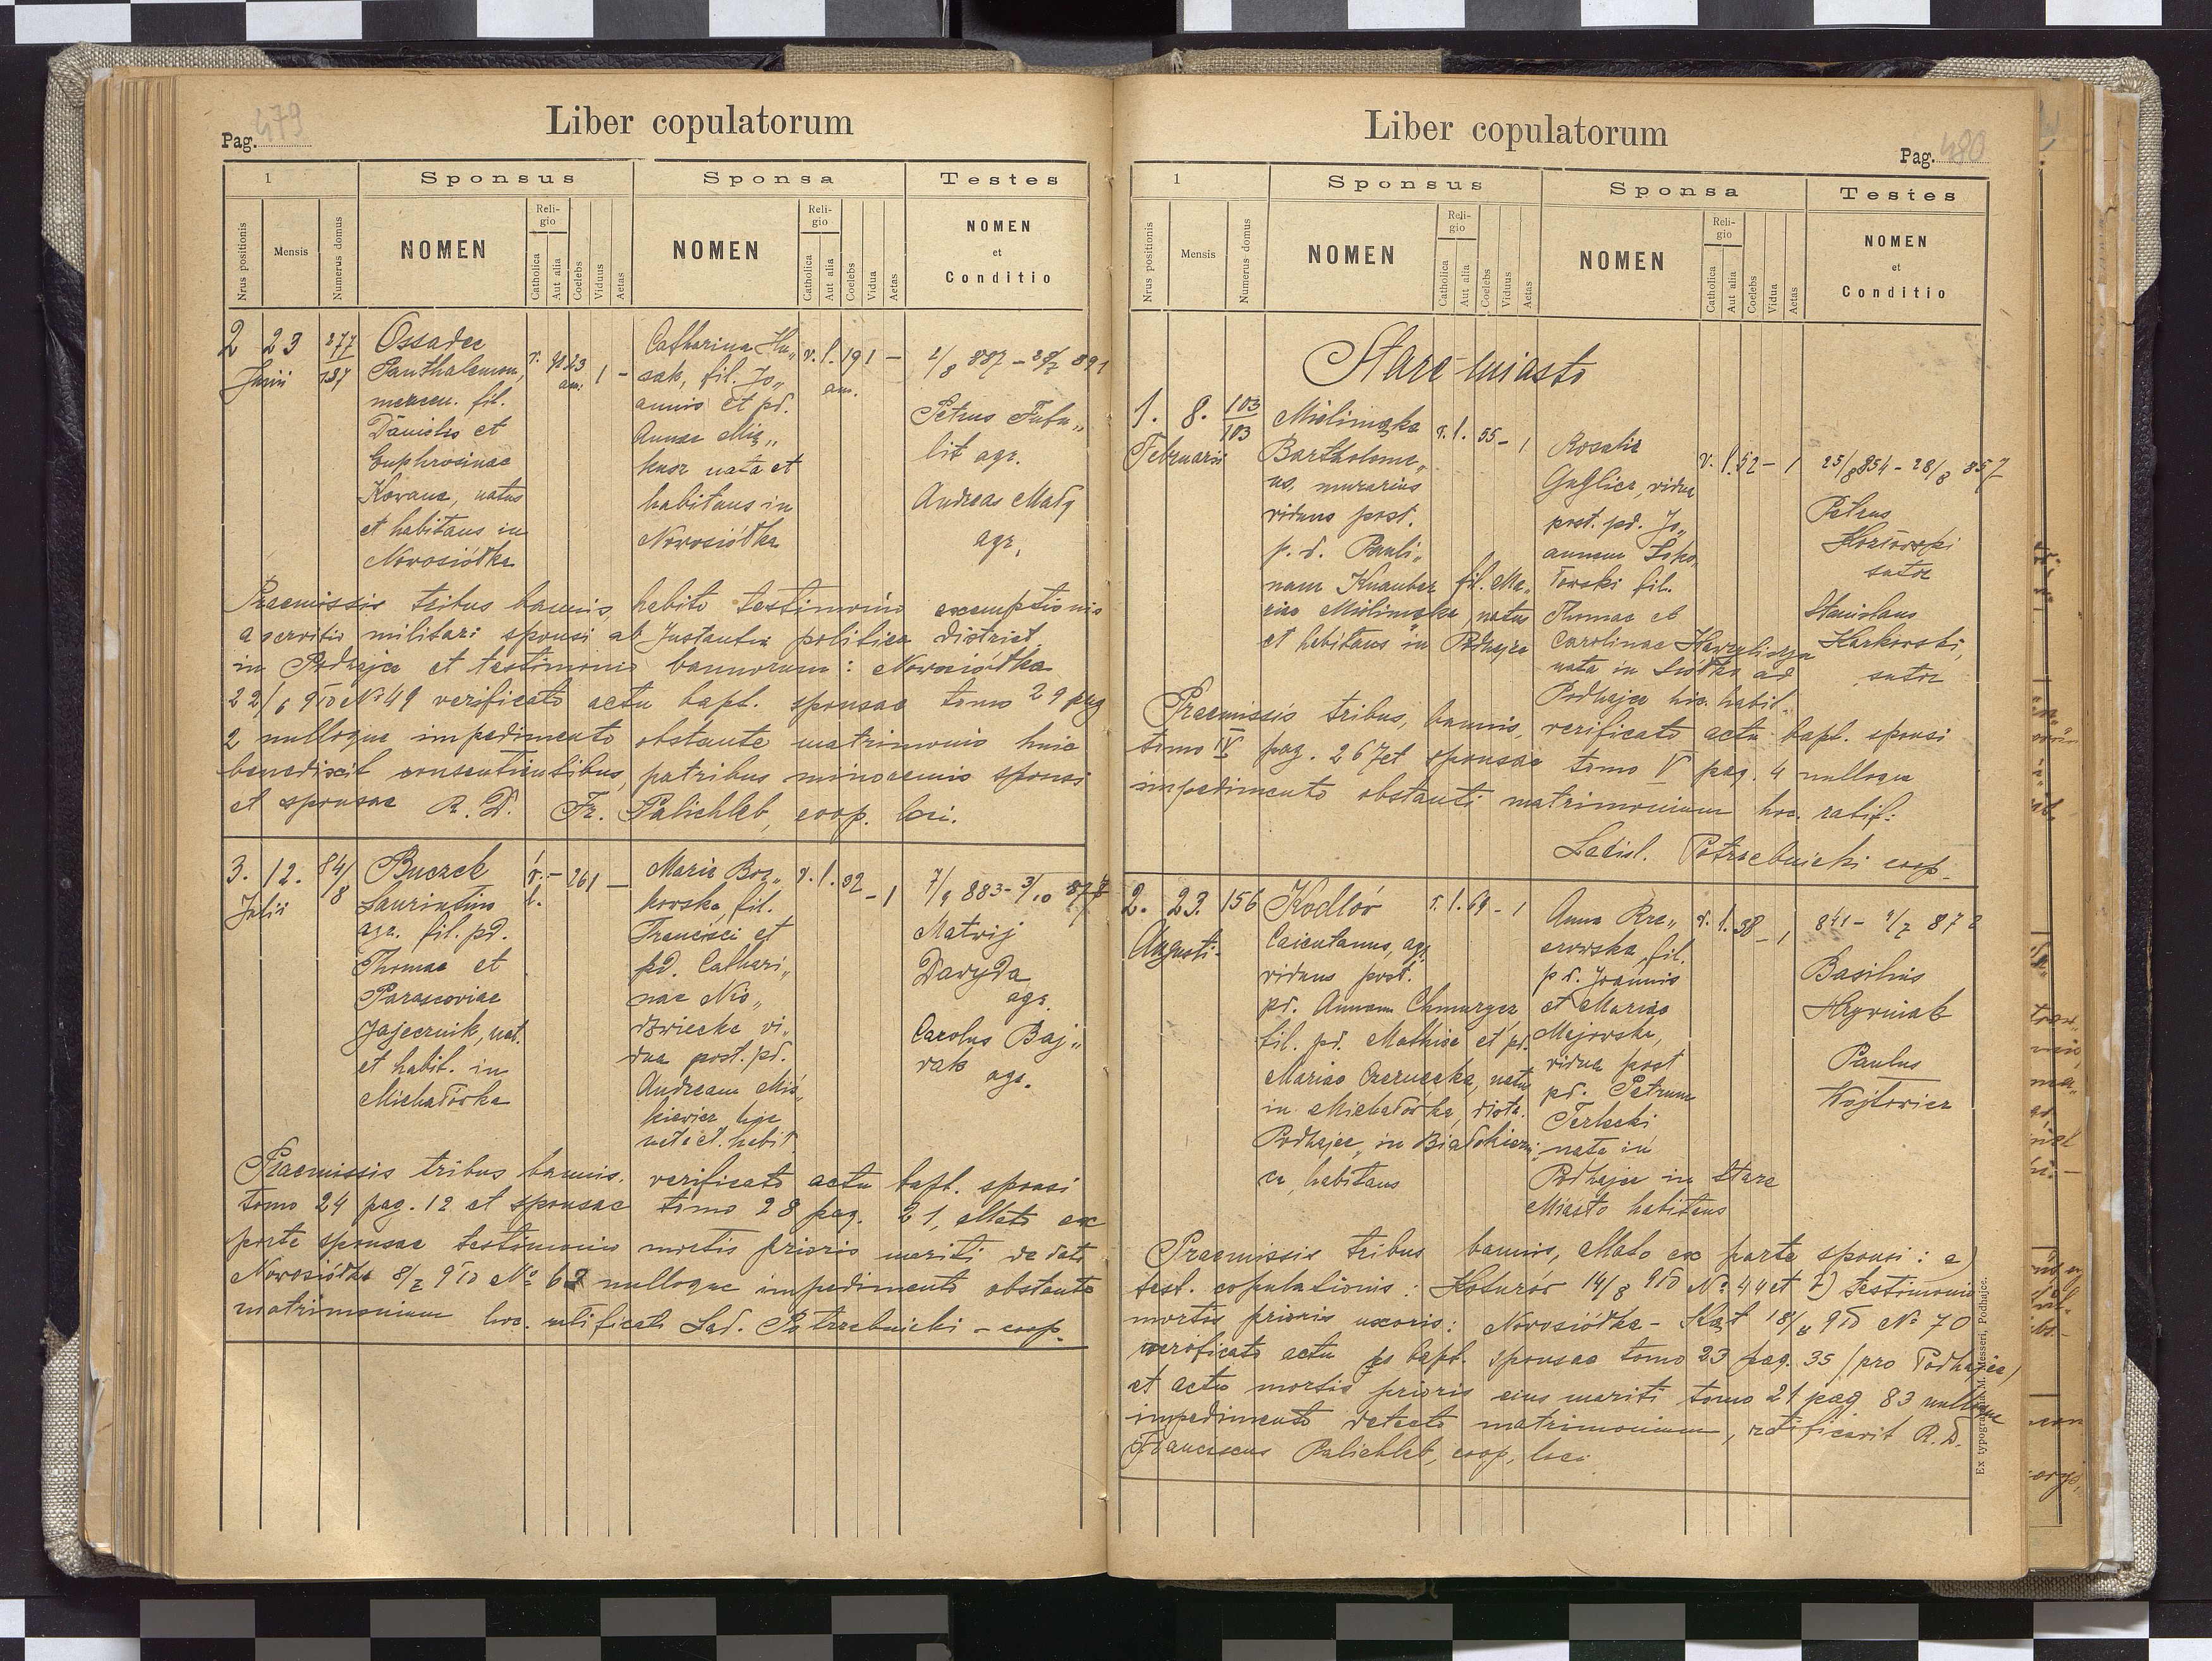 Pag. 479
Liber copulatorum
1
Sponsus
Sponsa
Testes
Nrus positionis
Mensis
Numerus domus
NOMEN
Religio
Catholica
Aut alia
Coelebs
Viduus
Aetas
NOMEN
Religio
Catholica
Aut alia
Coelebs
Vidua
Aetas
NOMEN
et
Conditio
2
23
Junii
277
187
Ossadec
Panthalemon,
mercen. fil.
Danielis et
Euphrosinae
Kovaue, natus
et habitans in
Nowosiółka
r. 23
am. 1 -
Catharina Hu„
sak, fil. Jo„
annis et pd.
Annae
nata et
habitans in
Nowosiółka
r. l. 19 1 -
am.
2/8 887 - 891
Petrus
lit agr.
Andreas
agr.
Praemissis tribus bannis, habito testimonio exemptionis
a servitio militari sponsi ab Instantia politica district.
in Podhajce et testimonio bannorum: Nowosiółka
22/6 910 № 49 verificato actu bapt. sponsae tomo 29 pag
2 nulloque impedimento obstante matrimonio huic
benedixit consentientibus patribus minorennis sponsi
et sponsae R. D. Fr. Palichleb, coop. loci.
3.
12.
Julii
84/
8
Buczek
Laurintius
agr. fil. pd.
Thomae et
Parascoviae
Jajecznik, nat.
et habit. in
Michałówka
r. - 26 1 -
l.
Maria Bor„
kowska, fil.
Francisci et
pd. Cathari„
nae Nie„
dzwiecka vi„
dua post. pd.
Andream Miś„
kiewicz hic
nata et habit.
r. l. 32 - 1
7/9 883 - 3/10 878
Matwij
Daryda
agr.
Carolus Baj„
rak agr.
Praemissis tribus bannis. verificato actu bapt. sponsi
tomo 24 pag. 12 et sponsae tomo 28 pag. 21, allato ex
parte sponsae testimonio mortis prioris mariti de dato
Nowosiółka 8/7 910 № 62 nulloque impedimento obstante
matrimonium hoc. ratificati Lad. Potrzebnicki - coop.
Liber copulatorum
Pag. 480
1
Sponsus
Sponsa
Testes
Nrus positionis
Mensis
Numerus domus
NOMEN
Religio
Catholica
Aut alia
Coelebs
Viduus
Aetas
NOMEN
Religio
Catholica
Aut alia
Coelebs
Vidua
Aetas
NOMEN
et
Conditio
Stare-miasto
1.
8.
Februarii
103
103
Mielimąka
Bartholome„
us, murarius
viduus post.
p. d. Pauli„
nam Knauber fil. Ma„
riae Mielimąka, natus
et habitans in Podhajce
r. l. 55 - 1
Rosalia
Guglicz, vidua
post. pd. Jo„
annem Soko
łowski fil.
Thomae et
Carolinae
nata in Siółko ad
Podhajce hic. habit.
r. l. 52 - 1
25/8 854 - 28/8 857
Petrus
Kozłowski
sutor
Stanislaus
Karkowski,
sutor
Praemissis tribus, bannis, verificato actu bapt. sponsi
tomo IV pag. 267 et sponsae tomo V pag. 4 nulloque
impedimento obstanti matrimonium hoc. ratif:
Ladisl. Potrzebnicki coop.
2.
23.
Augusti.
156
Kodlów
Caietanus, agr.
viduus post.
pd. Annam Chmurzer
fil. pd. Mathiae et pd.
Mariae Czernecka, natus
in Michałówka, dista.
Podhajce, in Białokierni„
ca, habitans
r. l. 69 - 1
Anna Rze„
czowska, fil.
pd. Joannis
et Mariae
Majowska,
vidua post
pd. Petrum
Terlecki
nata in
Podhajce in Stare
Miasto habitans
r. l. 38 - 1
841 - 2/7 872
Basilius
Hryniak
Paulus
Wojtowicz
Praemissis tribus bannis, allato ex parte sponsi: a)
test. copulationis: Hoturów 14/8 910 № 44 et b) testimonio
mortis prioris uxoris: Nowosiółka - Kąt 18/8 910 № 70
verificato actu bapt. sponsae tomo 23 pag. 35 (pro Podhajce)
et actu mortis prioris eius mariti tomo 21 pag 83 nulloque
impedimento detecto matrimonium, ratificavit R. D.
Franciscus Palichleb, coop. loci
Ex typographia M. Messeri, Podhajce.